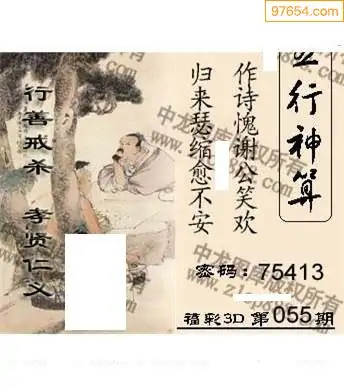 97654.com
行神算
作诗愧谢公笑欢
归来瑟缩愈不安
行善戒杀 孝贤仁义
密码：75413
福彩3D 第055期
版权所有